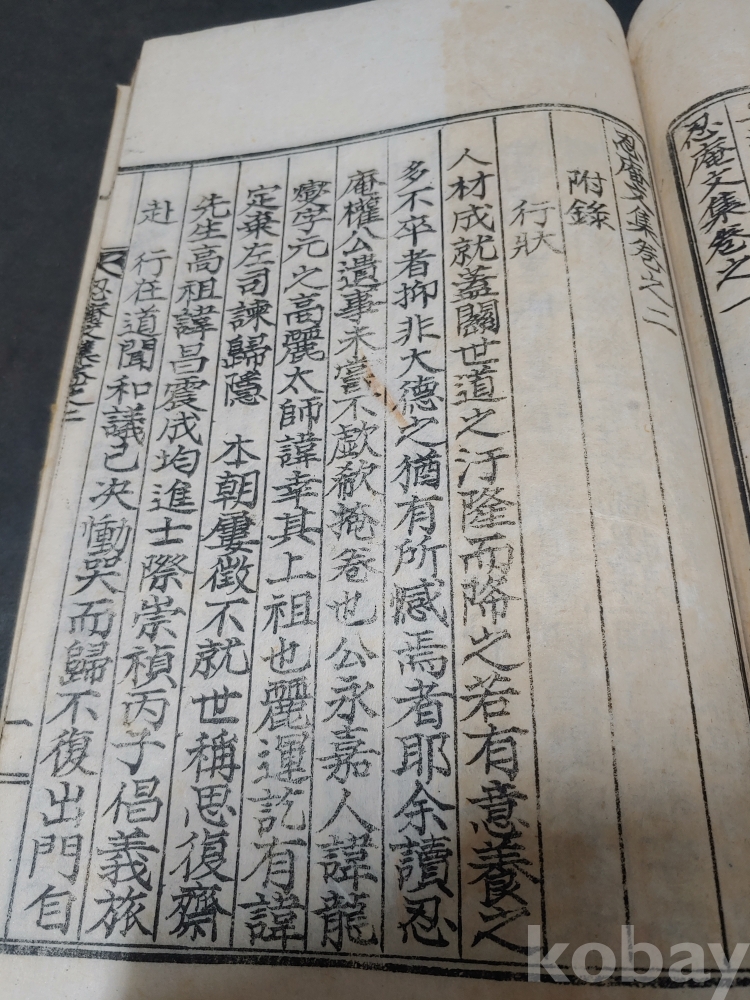 忍庵文集卷之一
忍庵文集卷之二
附錄
行狀
人材成就蓋關世道之汙隆而降之若有意養之
多不卒者抑非大德之猶有所憾焉者耶余讀忍
庵權公遺事未嘗不歔欷掩卷也公永嘉人諱龍
燮字元之高麗太師諱幸其上祖也麗運訖有諱
定棄左司諫歸隱 本朝屢徵不就世稱思復齋
先生高祖諱昌震成均進士際崇禎丙子倡義旅
赴 行在道聞和議已决慟哭而歸不復出門自
忍庵文集卷之二
一
kobay